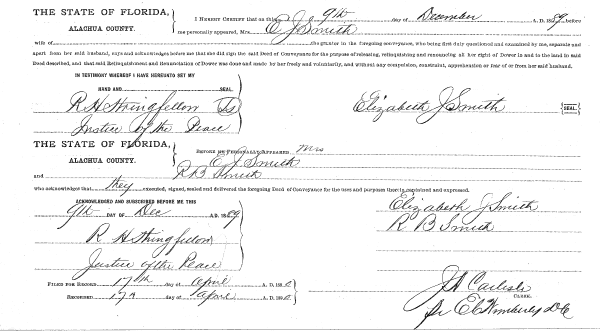 THE STATE OF FLORIDA,
ALACHUA COUNTY.
I HEREBY CERTIFY that on this 9th day of December A. D. 1889, before
me personally appeared, Mrs. E J Smith
wife of the grantor in the foregoing conveyance, who being first duly questioned and examined by me, separate and
apart from her said husband, says and acknowledges before me that she did sign the said Deed of Conveyance for the purpose of releasing, relinquishing and renouncing all her right of Dower in and to the land in said
Deed described, and that said Relinquishment and Renunciation of Dower was done and made by her freely and voluntarily, and without any compulsion, constraint, apprehension or fear of or from her said husband.
IN TESTIMONY WHEREOF I HAVE HEREUNTO SET MY
HAND AND SEAL.
R H Stringfellow
Elizabeth J Smith SEAL
Justice of the Peace
THE STATE OF FLORIDA,
ALACHUA COUNTY.
BEFORE ME PERSONALLY APPEARED Mrs
E J Smith
and R B Smith
who acknowledges that they executed, signed, sealed and delivered the foregoing Deed of Conveyance for the uses and purposes therein contained and expressed.
ACKNOWLEDGED AND SUBSCRIBED BEFORE ME THIS
9th DAY OF Dec A. D. 1889
Elizabeth J Smith
R B Smith
R H Stringfellow
Justice of the Peace
FILED FOR RECORD 17th day of April A. D. 1890
RECORDED 17th day of April A. D. 1890
J A Carlisle
CLERK.
E C Wimberly D C